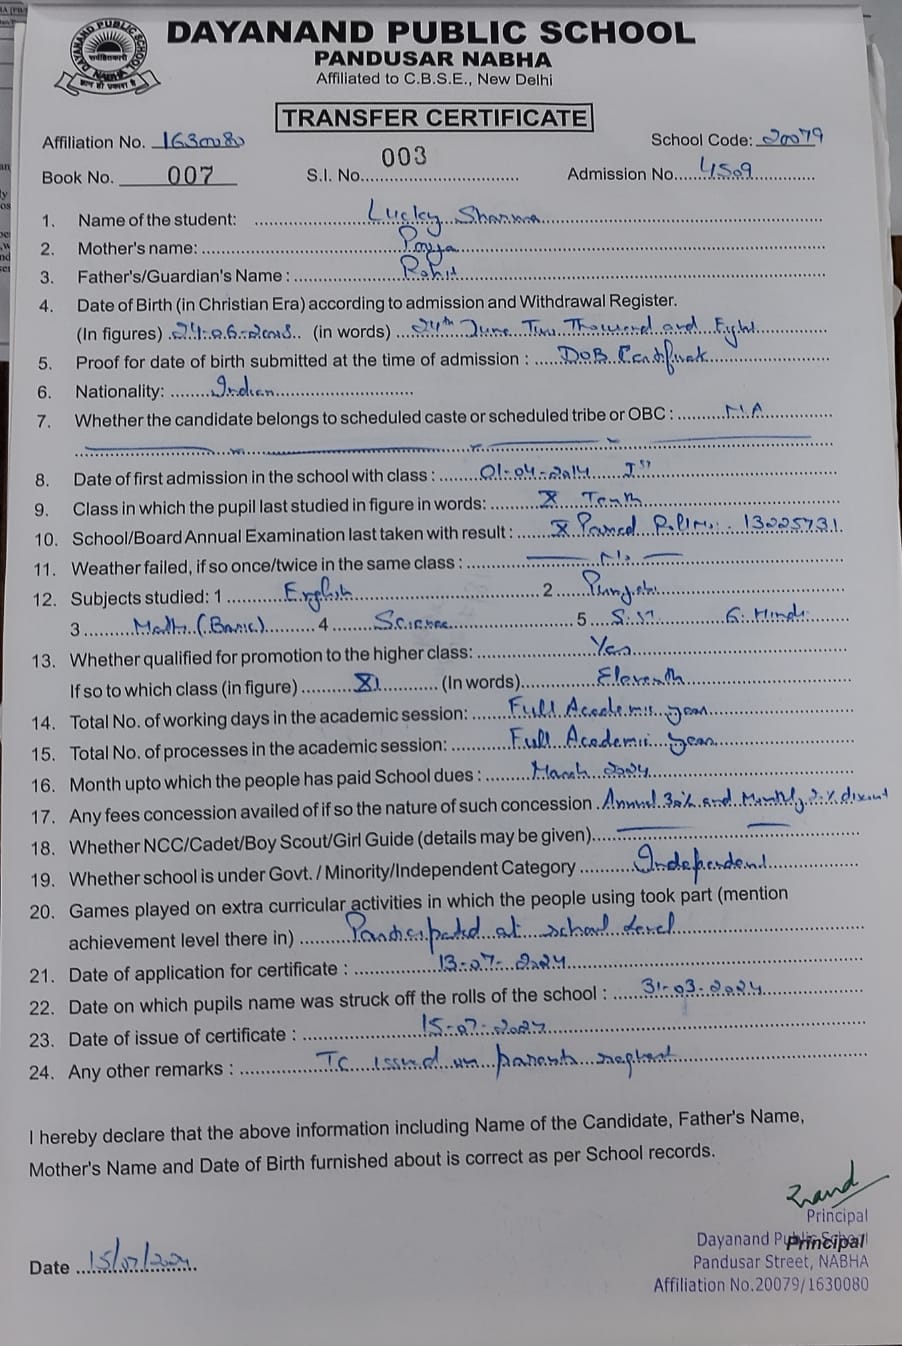 DAYANAND PUBLIC SCHOOL
PANDUSAR NABHA
Affiliated to C.B.S.E., New Delhi
DAYANAND PUBLIC SCHOOL
NABHA
TRANSFER CERTIFICATE
Affiliation No. 1630080 School Code: 20079
Book No. 007 S.I. No. 003 Admission No. 4509
1. Name of the student: Lucky Sharma
2. Mother's name: Pooja
3. Father's/Guardian's Name : Rohit
4. Date of Birth (in Christian Era) according to admission and Withdrawal Register.
(In figures) 24-06-2008 (in words) 24th June Two Thousand and Eight
5. Proof for date of birth submitted at the time of admission : DOB Certificate
6. Nationality: Indian
7. Whether the candidate belongs to scheduled caste or scheduled tribe or OBC : N.A
8. Date of first admission in the school with class : 01-04-2014 Ist
9. Class in which the pupil last studied in figure in words: X Tenth
10. School/Board Annual Examination last taken with result : X Passed Roll No. 13225731
11. Weather failed, if so once/twice in the same class : No
12. Subjects studied: 1 English 2 Punjabi
3 Math (Basic) 4 Science 5 S.St 6. Hindi
13. Whether qualified for promotion to the higher class: Yes
If so to which class (in figure) XI (In words) Eleventh
14. Total No. of working days in the academic session: Full Academic year
15. Total No. of processes in the academic session: Full Academic year
16. Month upto which the people has paid School dues : March 2024
17. Any fees concession availed of if so the nature of such concession Annual 30% and Monthly
18. Whether NCC/Cadet/Boy Scout/Girl Guide (details may be given)
19. Whether school is under Govt. / Minority/Independent Category Independent
20. Games played on extra curricular activities in which the people using took part (mention
achievement level there in) Participated at school level
21. Date of application for certificate : 13-07-2024
22. Date on which pupils name was struck off the rolls of the school : 31-03-2024
23. Date of issue of certificate : 15-07-2024
24. Any other remarks : TC issued on parents request
I hereby declare that the above information including Name of the Candidate, Father's Name,
Mother's Name and Date of Birth furnished about is correct as per School records.
Principal
Dayanand Public School
Principal
Pandusar Street, NABHA
Affiliation No.20079/1630080
Date 15/07/2024